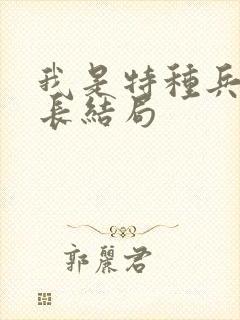 我是特種兵
長結局
郭麗君